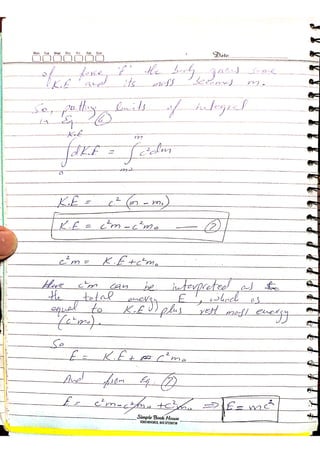 Mon Tue Wed Thu Fri Sat Sun
Date
of force 'F' the body gains some
K.E and its mass becomes m.
So, putting limits of integral
in Eq (6)
K.E m
∫dK.E = ∫c²dm
0 m₀
K.E = c² (m - m₀)
K.E = c²m - c²m₀ — (7)
c²m = K.E + c²m₀
Here c²m can be interpreted as
the total energy E, which is
equal to K.E plus rest mass energy
(c²m₀).
So
E = K.E + c²m₀
And from Eq. (7)
E = c²m - c²m₀ + c²m₀ ⇒ E = mc²
Simple Book House